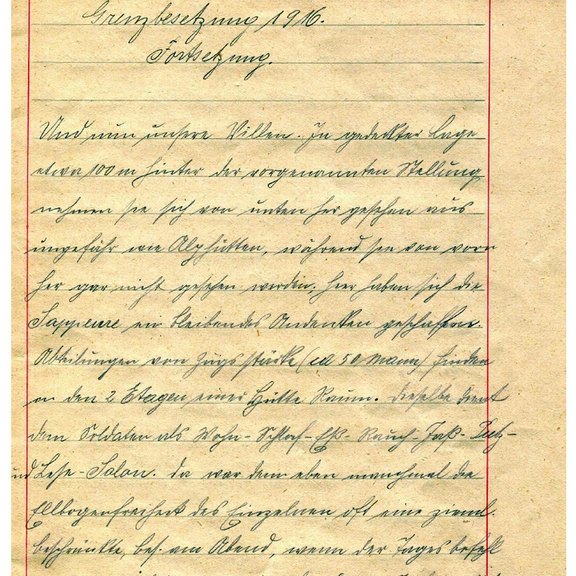 Grenzbesetzung 1916.
Fortsetzung.
Und nun unsere Villen. In gedeckter Lage
etwa 100 m hinter der vorgenannten Stellung
nehmen sie sich von unten her gesehen aus
ungefähr wie Alphütten, während sie von vorn
her gar nicht gesehen werden. Hier haben sich die
Sappeure ein bleibendes Andenken geschaffen.
Abteilungen von Zugsstärke (ca 50 Mann) finden
in den 2 Etagen einer Hütte Raum. Dieselbe dient
dem Soldaten als Wohn- Schlaf- Eß- Rauch- Jaß- Putz-
und Lese-Salon. Da war dem eben manchmal die
Ellbogenfreiheit des Einzelnen oft eine zieml.
beschränkte, bes. am Abend, wenn der Tagesbefehl